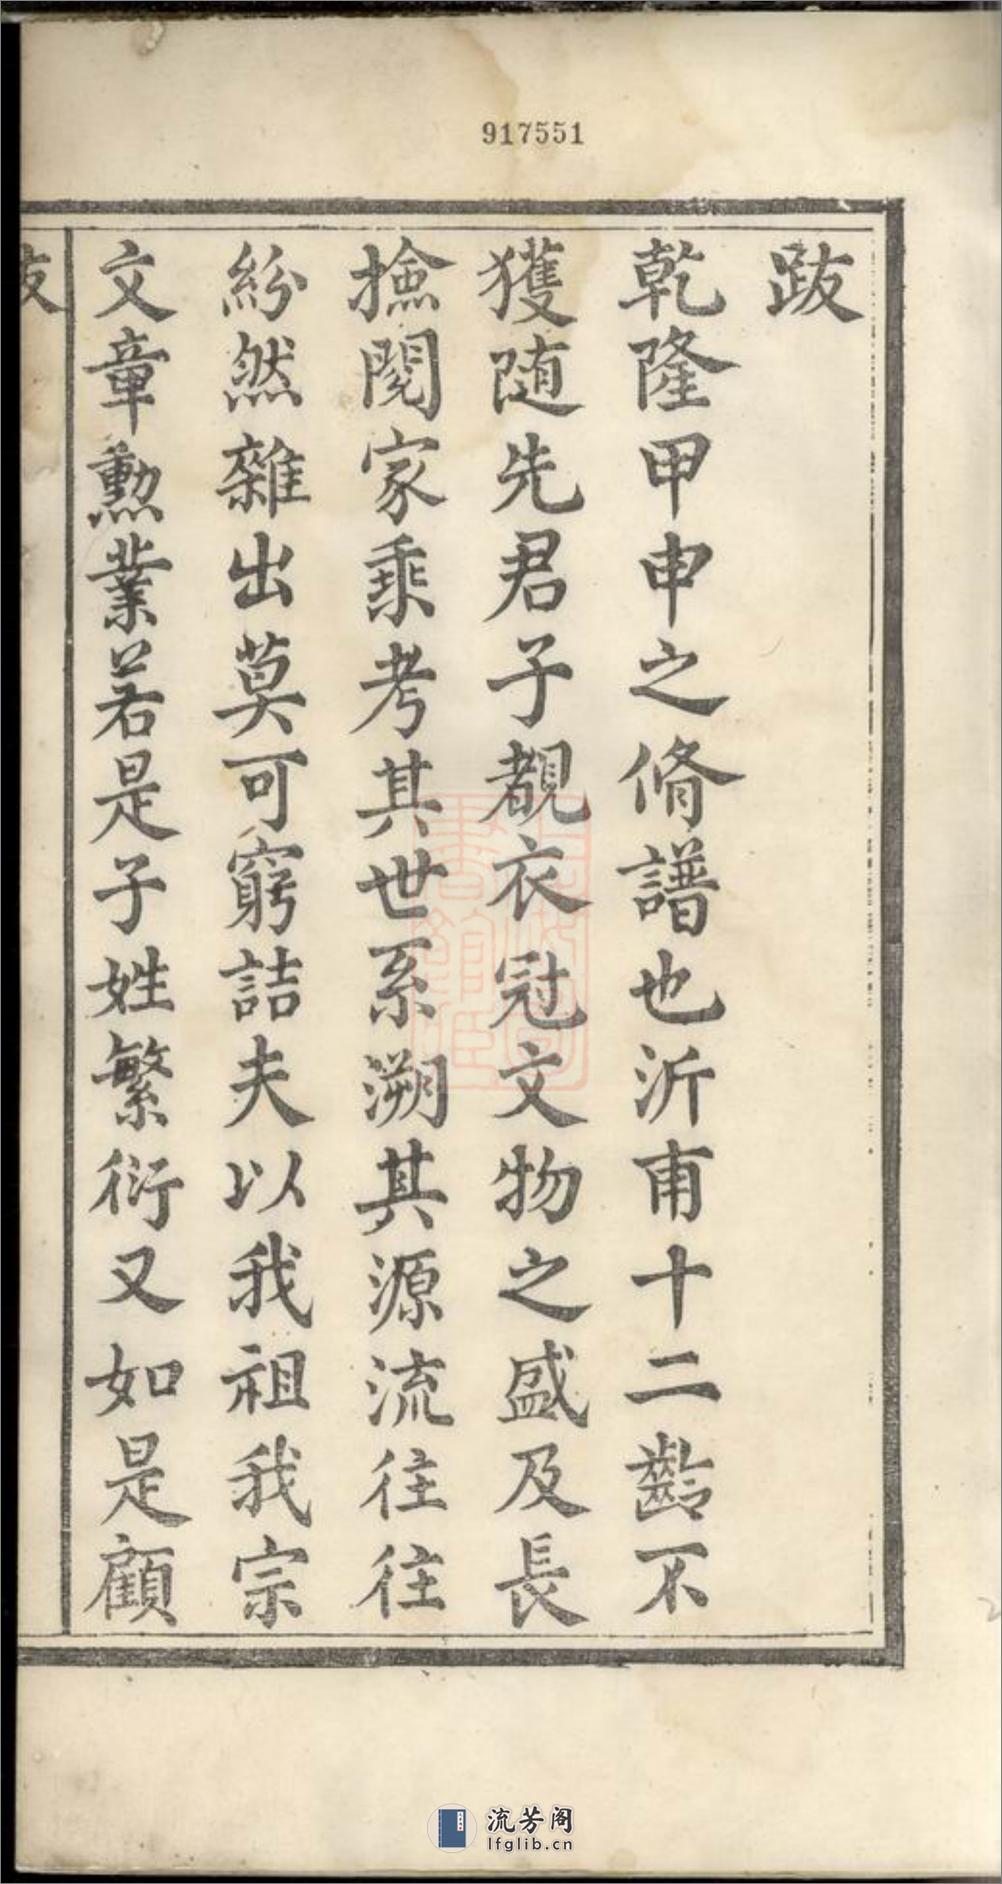 917551
跋
乾隆甲申之脩譜也沂甫十二齡不
獲随先君子覩衣冠文物之盛及長
撿閱家乘考其世系溯其源流往往
紛然雜出莫可窮詰夫以我祖我宗
文章勲業若是子姓繁衍又如是顧
跋
流芳阁
lfglib.cn